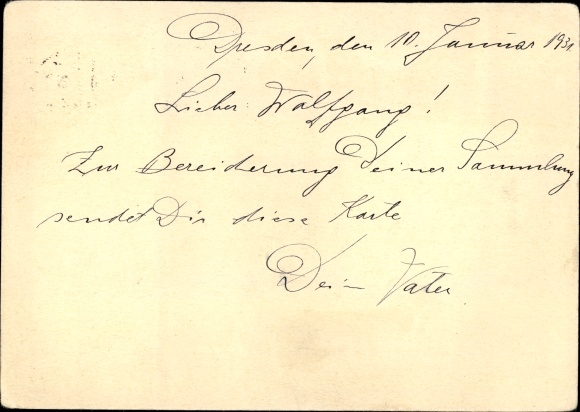 Dresden, den 10. Januar 1931
Lieber Wolfgang!
Zur Bereicherung Deiner Sammlung
sendet Dir diese Karte
Dein Vater